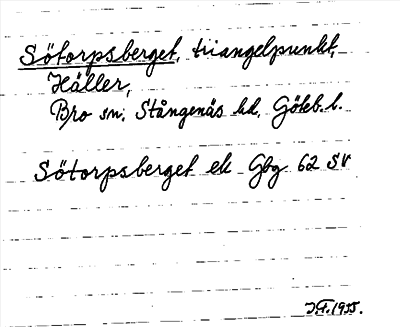 Sötorpsberget, triangelpunkt,
Häller,
Bro sn, Stångenäs hd, Göteb. l.
Sötorpsberget ek Gbg 62 SV
J.F. 1955.